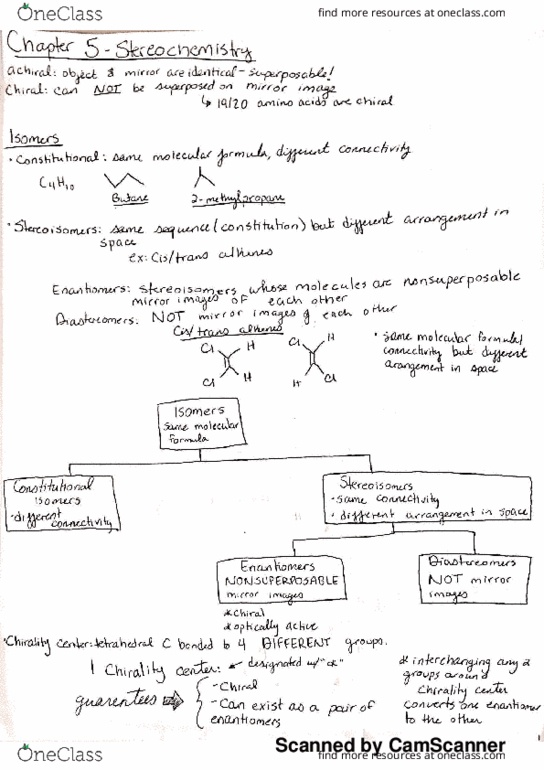 OneClass
find more resources at oneclass.com
Chapter 5 - Stereochemistry
achiral: object & mirror are identical - superposable!
Chiral: can NOT be superposed on mirror image
↳ 19/20 amino acids are chiral
Isomers
• Constitutional: same molecular formula, different connectivity
C4H10
Butane
2-methylpropane
• Stereoisomers: same sequence (constitution) but different arrangement in
space
ex: Cis/trans alkenes
Enantiomers: stereoisomers whose molecules are nonsuperposable
mirror images of each other
Diastereomers: NOT mirror images of each other
Cis/trans alkenes
Cl H Cl H
Cl H H Cl
• same molecular formula/
connectivity but different
arangement in space
Isomers
same molecular
formula
Constitutional
isomers
• different
connectivity
Stereoisomers
• same connectivity
• different arrangement in space
Enantiomers
NONSUPERPOSABLE
mirror images
Diastereomers
NOT mirror
images
* Chiral
* optically active
• Chirality center: tetrahedral C bonded to 4 DIFFERENT groups.
1 Chirality center:
designated w/ "*"
guarentees
- Chiral
- Can exist as a pair of
enantiomers
* interchanging any 2
groups around
Chirality center
converts one enantiomer
to the other
Scanned by CamScanner
OneClass
find more resources at oneclass.com